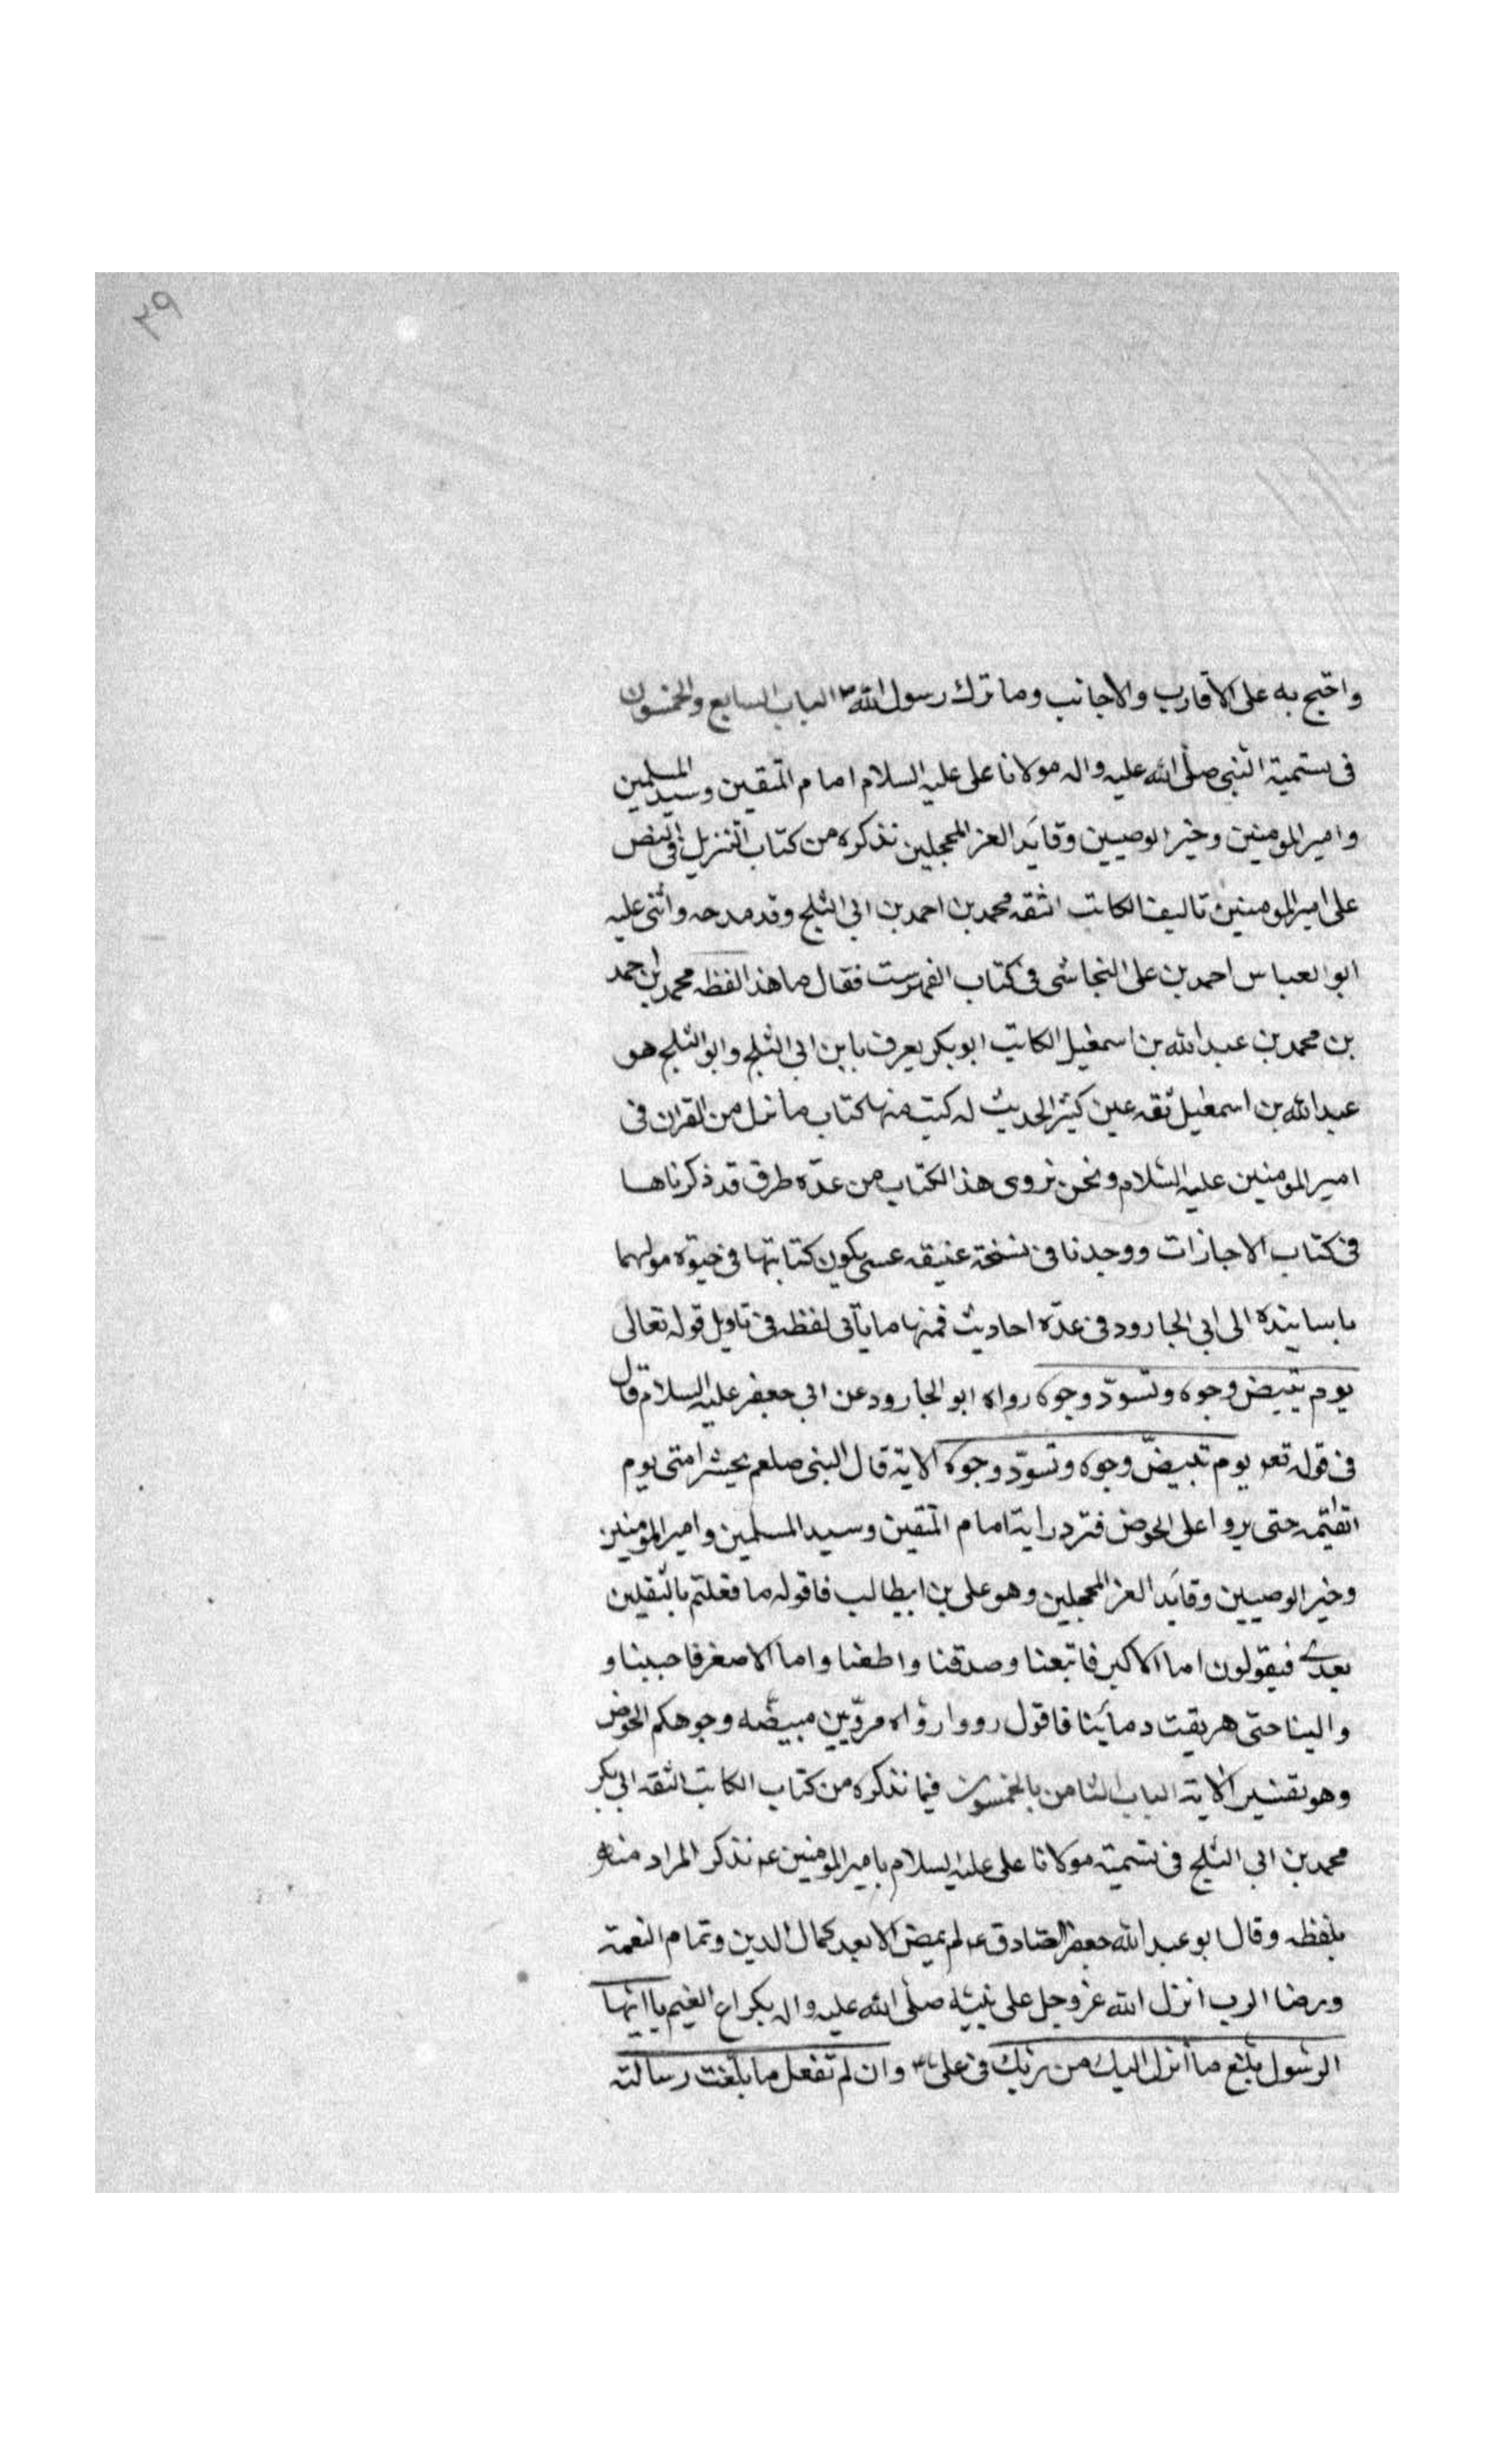 ٣٩
واحتج به على الاقارب والاجانب وما ترك رسول الله ص الباب السابع والخمسون
فى تسمية النبى صلى الله عليه واله مولانا على عليه السلام امام المتقين وسيد المسلمين
وامير المومنين وخير الوصيين وقايد الغر المحجلين نذكره من كتاب التنزيل فى النص
على امير المومنين تاليف الكاتب الثقه محمد بن احمد بن ابى الثلج وقد مدحه واثنى عليه
ابو العباس احمد بن على النجاشى فى كتاب الفهرست فقال ما هذا لفظه محمد بن احمد
بن محمد بن عبد الله بن اسمعيل الكاتب ابو بكر يعرف بابن ابى الثلج وابو الثلج هو
عبد الله بن اسمعيل ثقه عين كثير الحديث له كتب منها كتاب ما نزل من القران فى
امير المومنين عليه السلام ونحن نروى هذا الكتاب من عدّه طرق قد ذكرناها
فى كتاب الاجازات ووجدنا فى نسخة عتيقه عسى يكون كتابتها فى حيوة مولهما
باسانيده الى ابى الجارود فى عدّه احاديث فمنها ما ياتى لفظه فى تاويل قوله تعالى
يوم تبيض وجوه وتسودّ وجوه رواه ابو الجارود عن ابى جعفر عليه السلام قال
فى قوله تعه يوم تبيضّ وجوه وتسودّ وجوه الاية قال النبى صلعم يحشر امتى يوم
القيٰمه حتى يروا على الحوض فترد راية امام المتقين وسيد المسلمين وامير المومنين
وخير الوصيين وقايد الغر المحجلين وهو على بن ابيطالب فاقوله ما فعلتم بالثقلين
بعدى فيقولون اما الاكبر فاتبعنا وصدقنا واطعنا واما الاصغر فاحببنا و
والينا حتى هريقت دماينا فاقول رووا رواه مروّيين مبيضّه وجوهكم الحوض
وهو تفسير الاية الباب الثامن بالخمسون فيما نذكره من كتاب الكاتب الثقه ابى بكر
محمد بن ابى الثلج فى تسمية مولانا على عليه السلام بامير المومنين عه نذكر المراد منه
بلفظه وقال ابو عبد الله جعفر الصادق عه لم يمض الا بعد كمال الدين وتمام النعمة
ورضا الرب انزل الله عز وجل على نبيّه صلى الله عليه واله بكراع الغيم يا ايها
الرسول بلّغ ما أنزل اليك من ربك فى على ع وان لم تفعل ما بلّغت رسالته